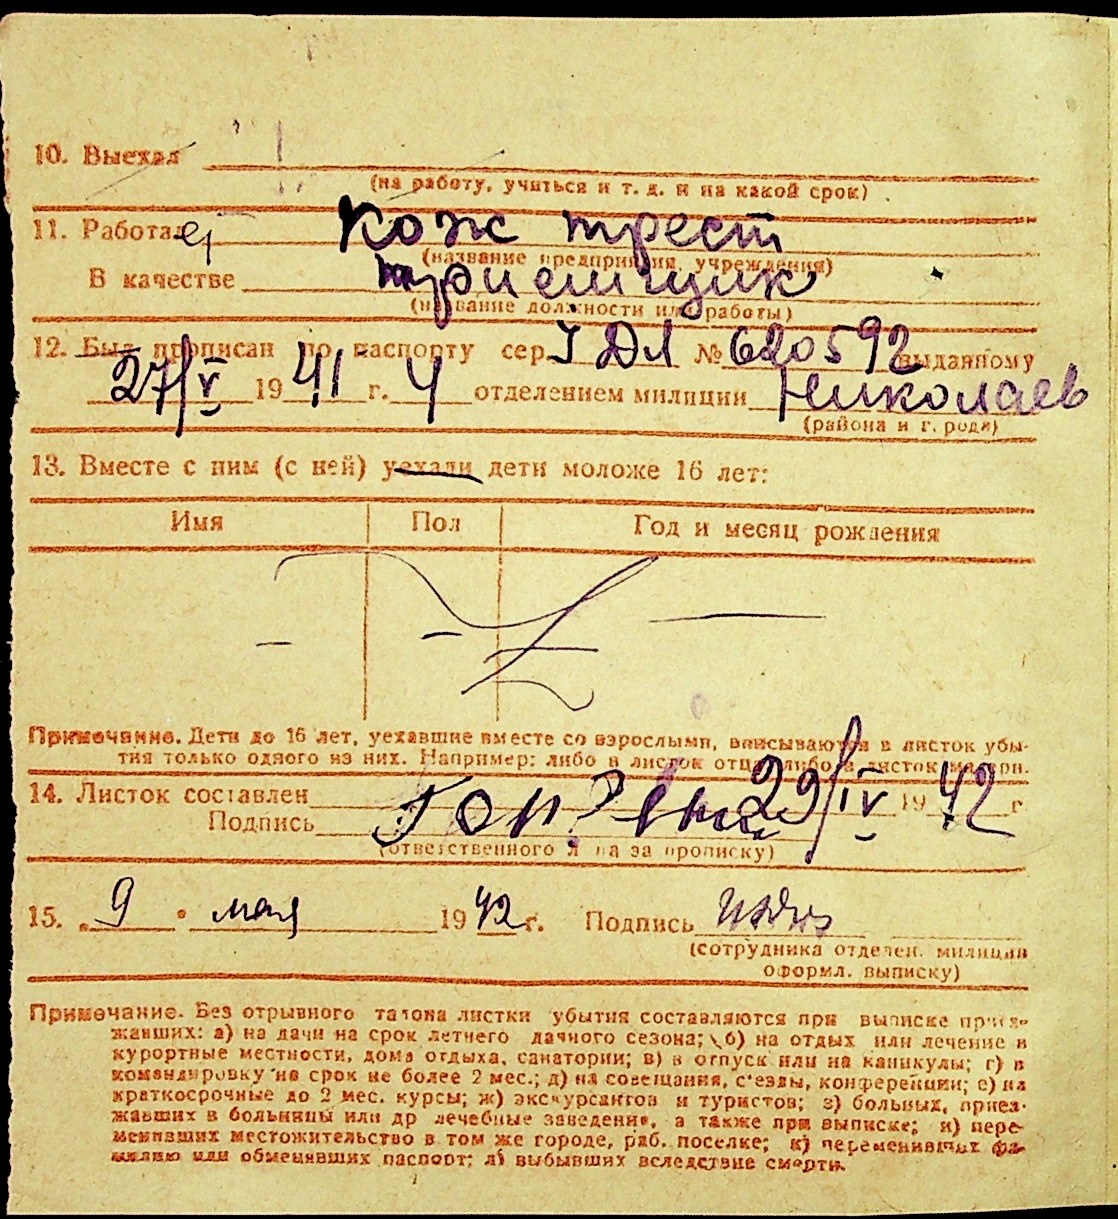 10. Выехал
(на работу, учиться и т. д. и на какой срок)
11. Работает Кож трест
(название предприятия, учреждения)
В качестве приемщик
(название должности или работы)
12. Был прописан по паспорту сер. I ДЛ № 620592 выданному
27/V 1941 г. 4 отделением милиции Николаев
(района и г. рода)
13. Вместе с ним (с ней) уехали дети моложе 16 лет:
Имя Пол Год и месяц рождения
Примечание. Дети до 16 лет, уехавшие вместе со взрослыми, вписываются в листок убы-
тия только одного из них. Например: либо в листок отца, либо в листок матери.
14. Листок составлен 29/IV 1942 г.
Подпись
(ответственного л на за прописку)
15. „9 " мая 1942 г. Подпись
(сотрудника отделен. милиции
оформл. выписку)
Примечание. Без отрывного талона листки убытия составляются при выписке приез-
жавших: а) на дачи на срок летнего дачного сезона; б) на отдых или лечение в
курортные местности, дома отдыха, санатории; в) в отпуск или на каникулы; г) в
командировку на срок не более 2 мес.; д) на совещания, с'езды, конференции; е) на
краткосрочные до 2 мес. курсы; ж) экскурсантов и туристов; з) больных, приез-
жавших в больницы или др лечебные заведения, а также при выписке; и) пере-
менивших местожительство в том же городе, раб. поселке; к) переменивших фа-
милию или обменявших паспорт; л) выбывших вследствие смерти.